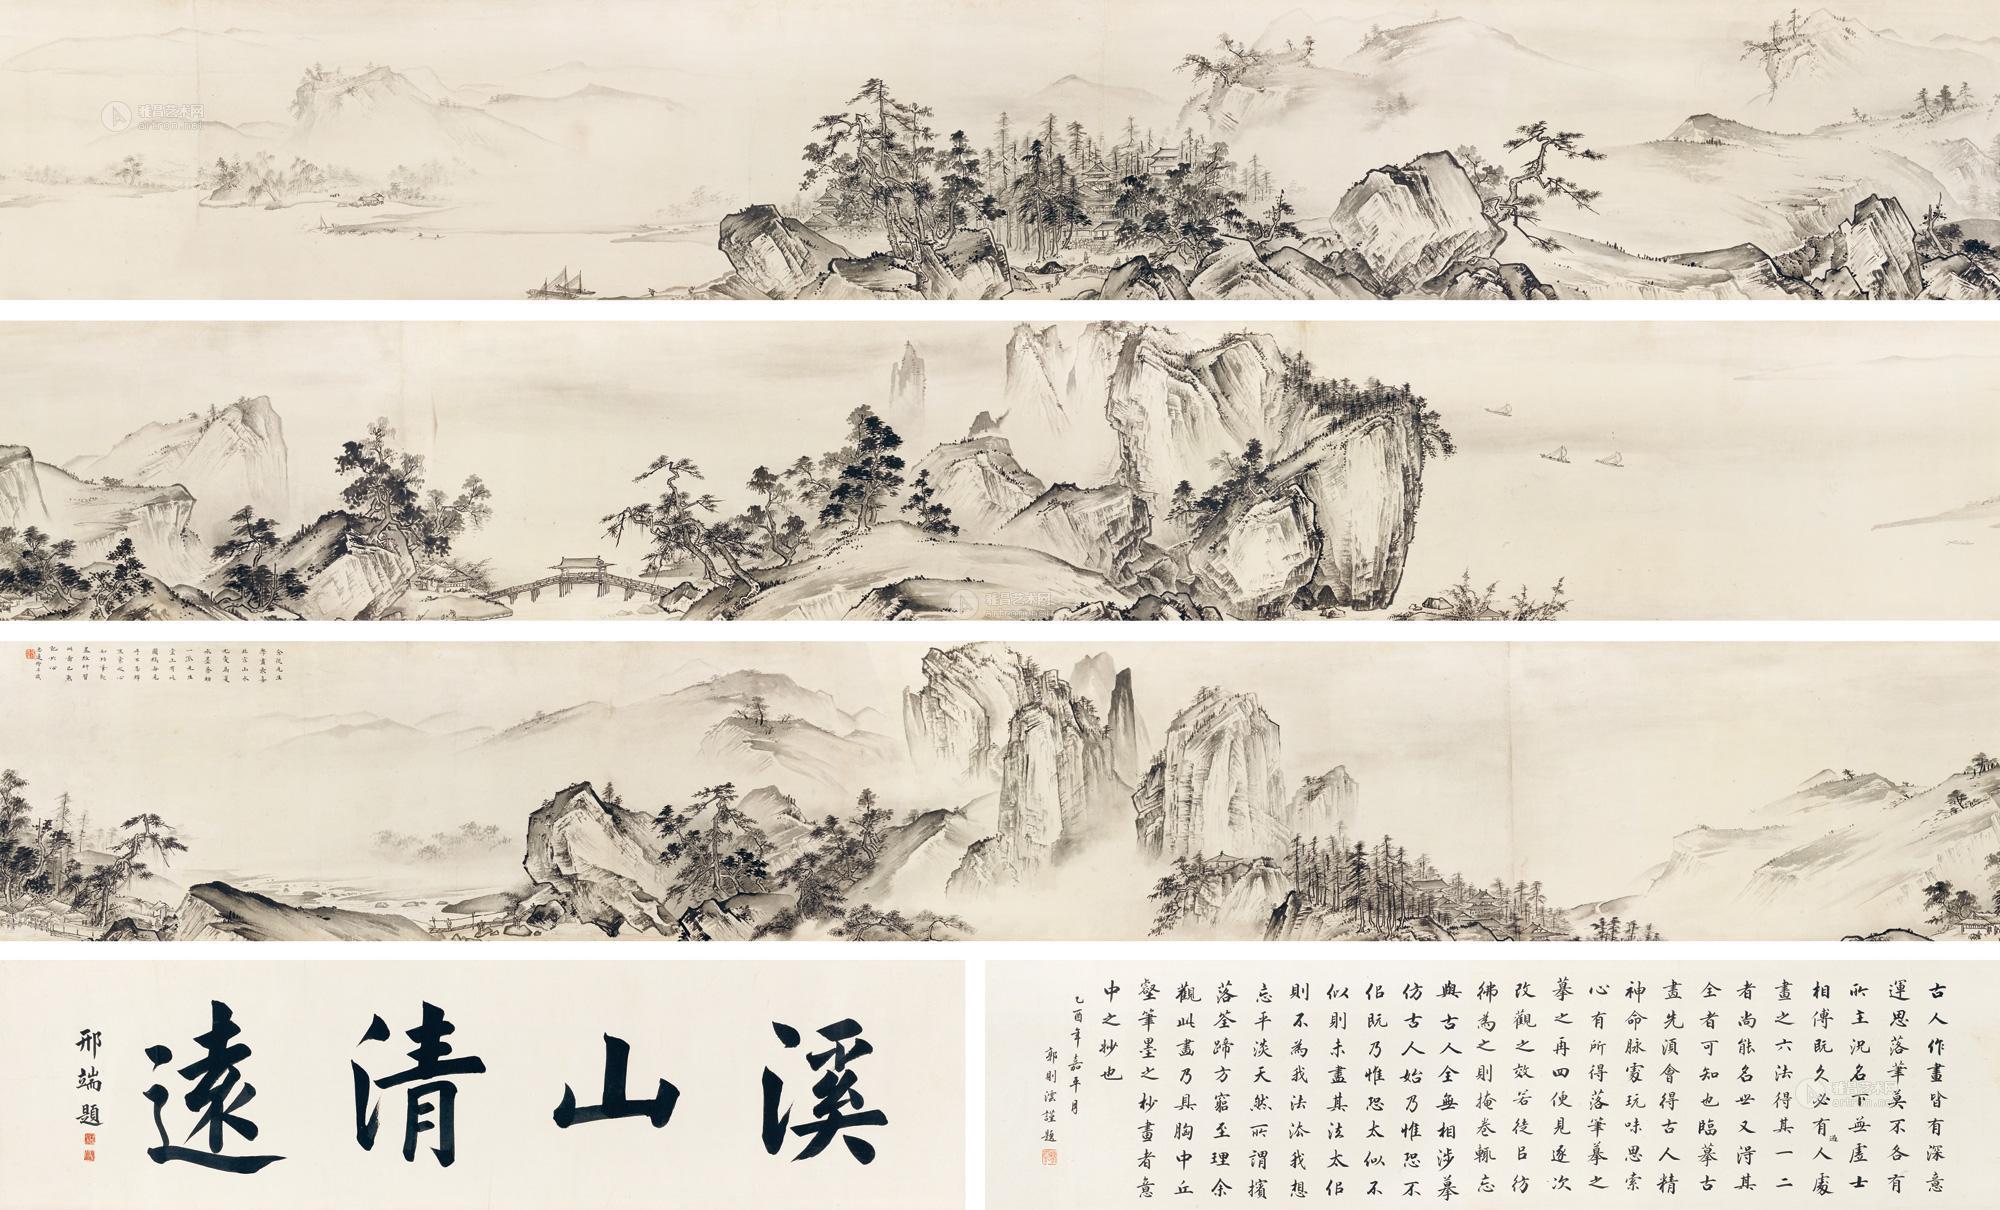 雅昌艺术网
artron.net
雅昌艺术网
artron.net
溪山清遠
邢端題
古人作畫皆有深意
運思落筆莫不各有
所主況名下無虛士
相傳既久必有過人處
畫之六法得其一二
者尚能名世又得其
全者可知也臨摹古
畫先須會得古人精
神命脉處玩味思索
心有所得落筆摹之
摹之再四便見逐次
改觀之效若徒㠯彷
彿為之則掩卷輒忘
與古人全無相涉摹
仿古人始乃惟恐不
佀既乃惟恐太似不
似則未盡其法太佀
則不為我法法我想
忘平淡天然所謂擯
落筌蹄方窮至理余
觀此畫乃具胸中丘
壑筆墨之妙畫者意
中之妙也
乙酉年嘉平月
郭則澐謹題
雅昌艺术网
artron.net